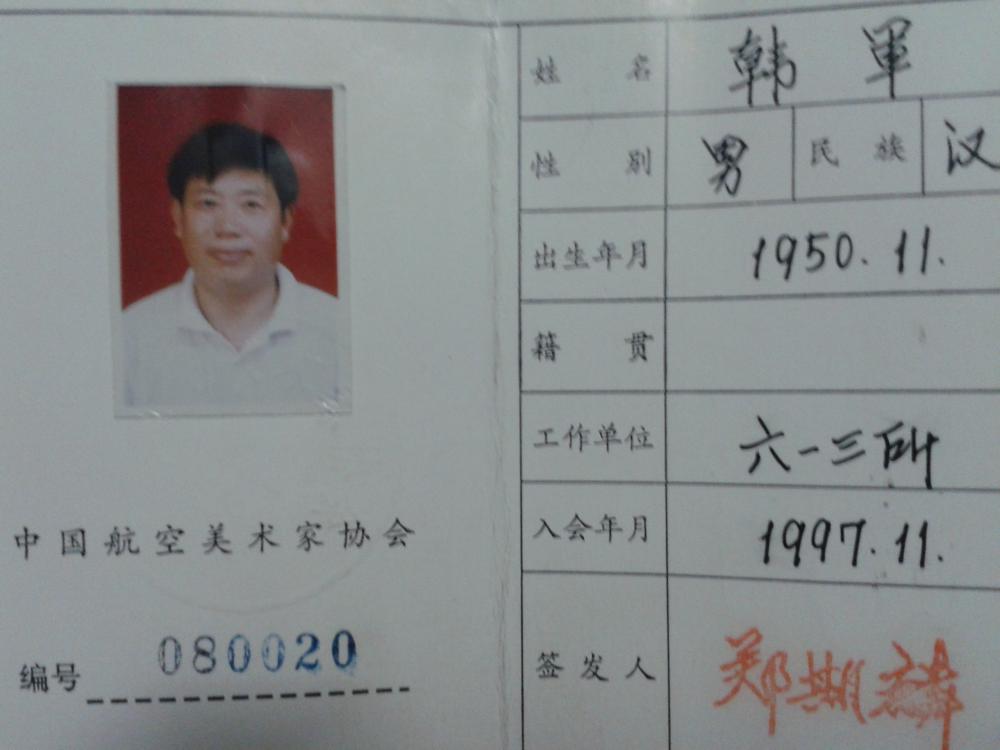 中国航空美术家协会
编号 080020
姓名 韩軍
性别 男 民族 汉
出生年月 1950.11.
籍贯
工作单位 六一三所
入会年月 1997.11.
签发人